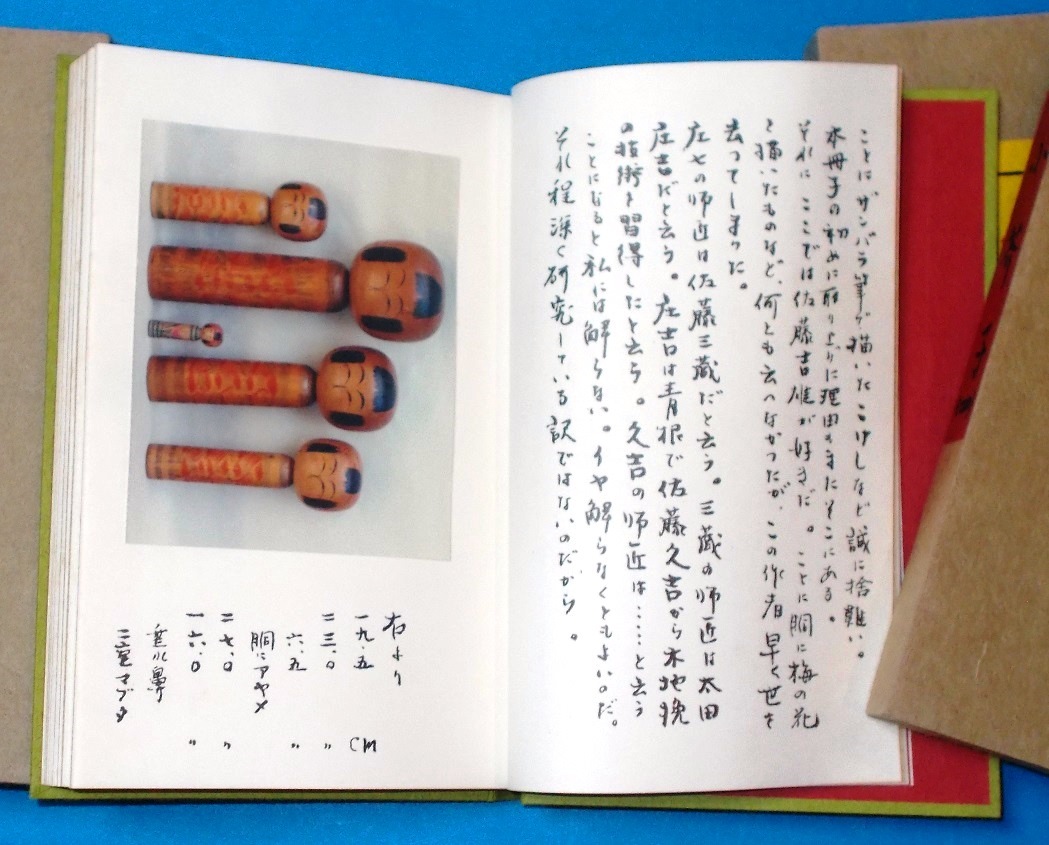 ことにザンバラ筆で描いたこけしなど誠に捨難い。
本冊子の初めに取り上げた理由の一つはそこにある。
それに ここでは佐藤吉雄が好きだ。ことに胴に梅の花
を描いたものなど、何とも云へなかったが、この作者早く世を
去ってしまった。
庄七の師匠は佐藤三蔵だと云う。三蔵の師匠は太田
庄吉だと云う。庄吉は青根で佐藤久吉から木地挽
の技術を習得したと云う。久吉の師匠は……と云う
ことになると私には解らない。イヤ解らなくともよいのだ。
それ程深く研究している訳ではないのだから。
右より
一九.五 CM
二三.〇 〃
六.五 〃
胴にアヤメ
二七.〇 〃
一六.〇 〃
垂れ鼻
二重マブタ